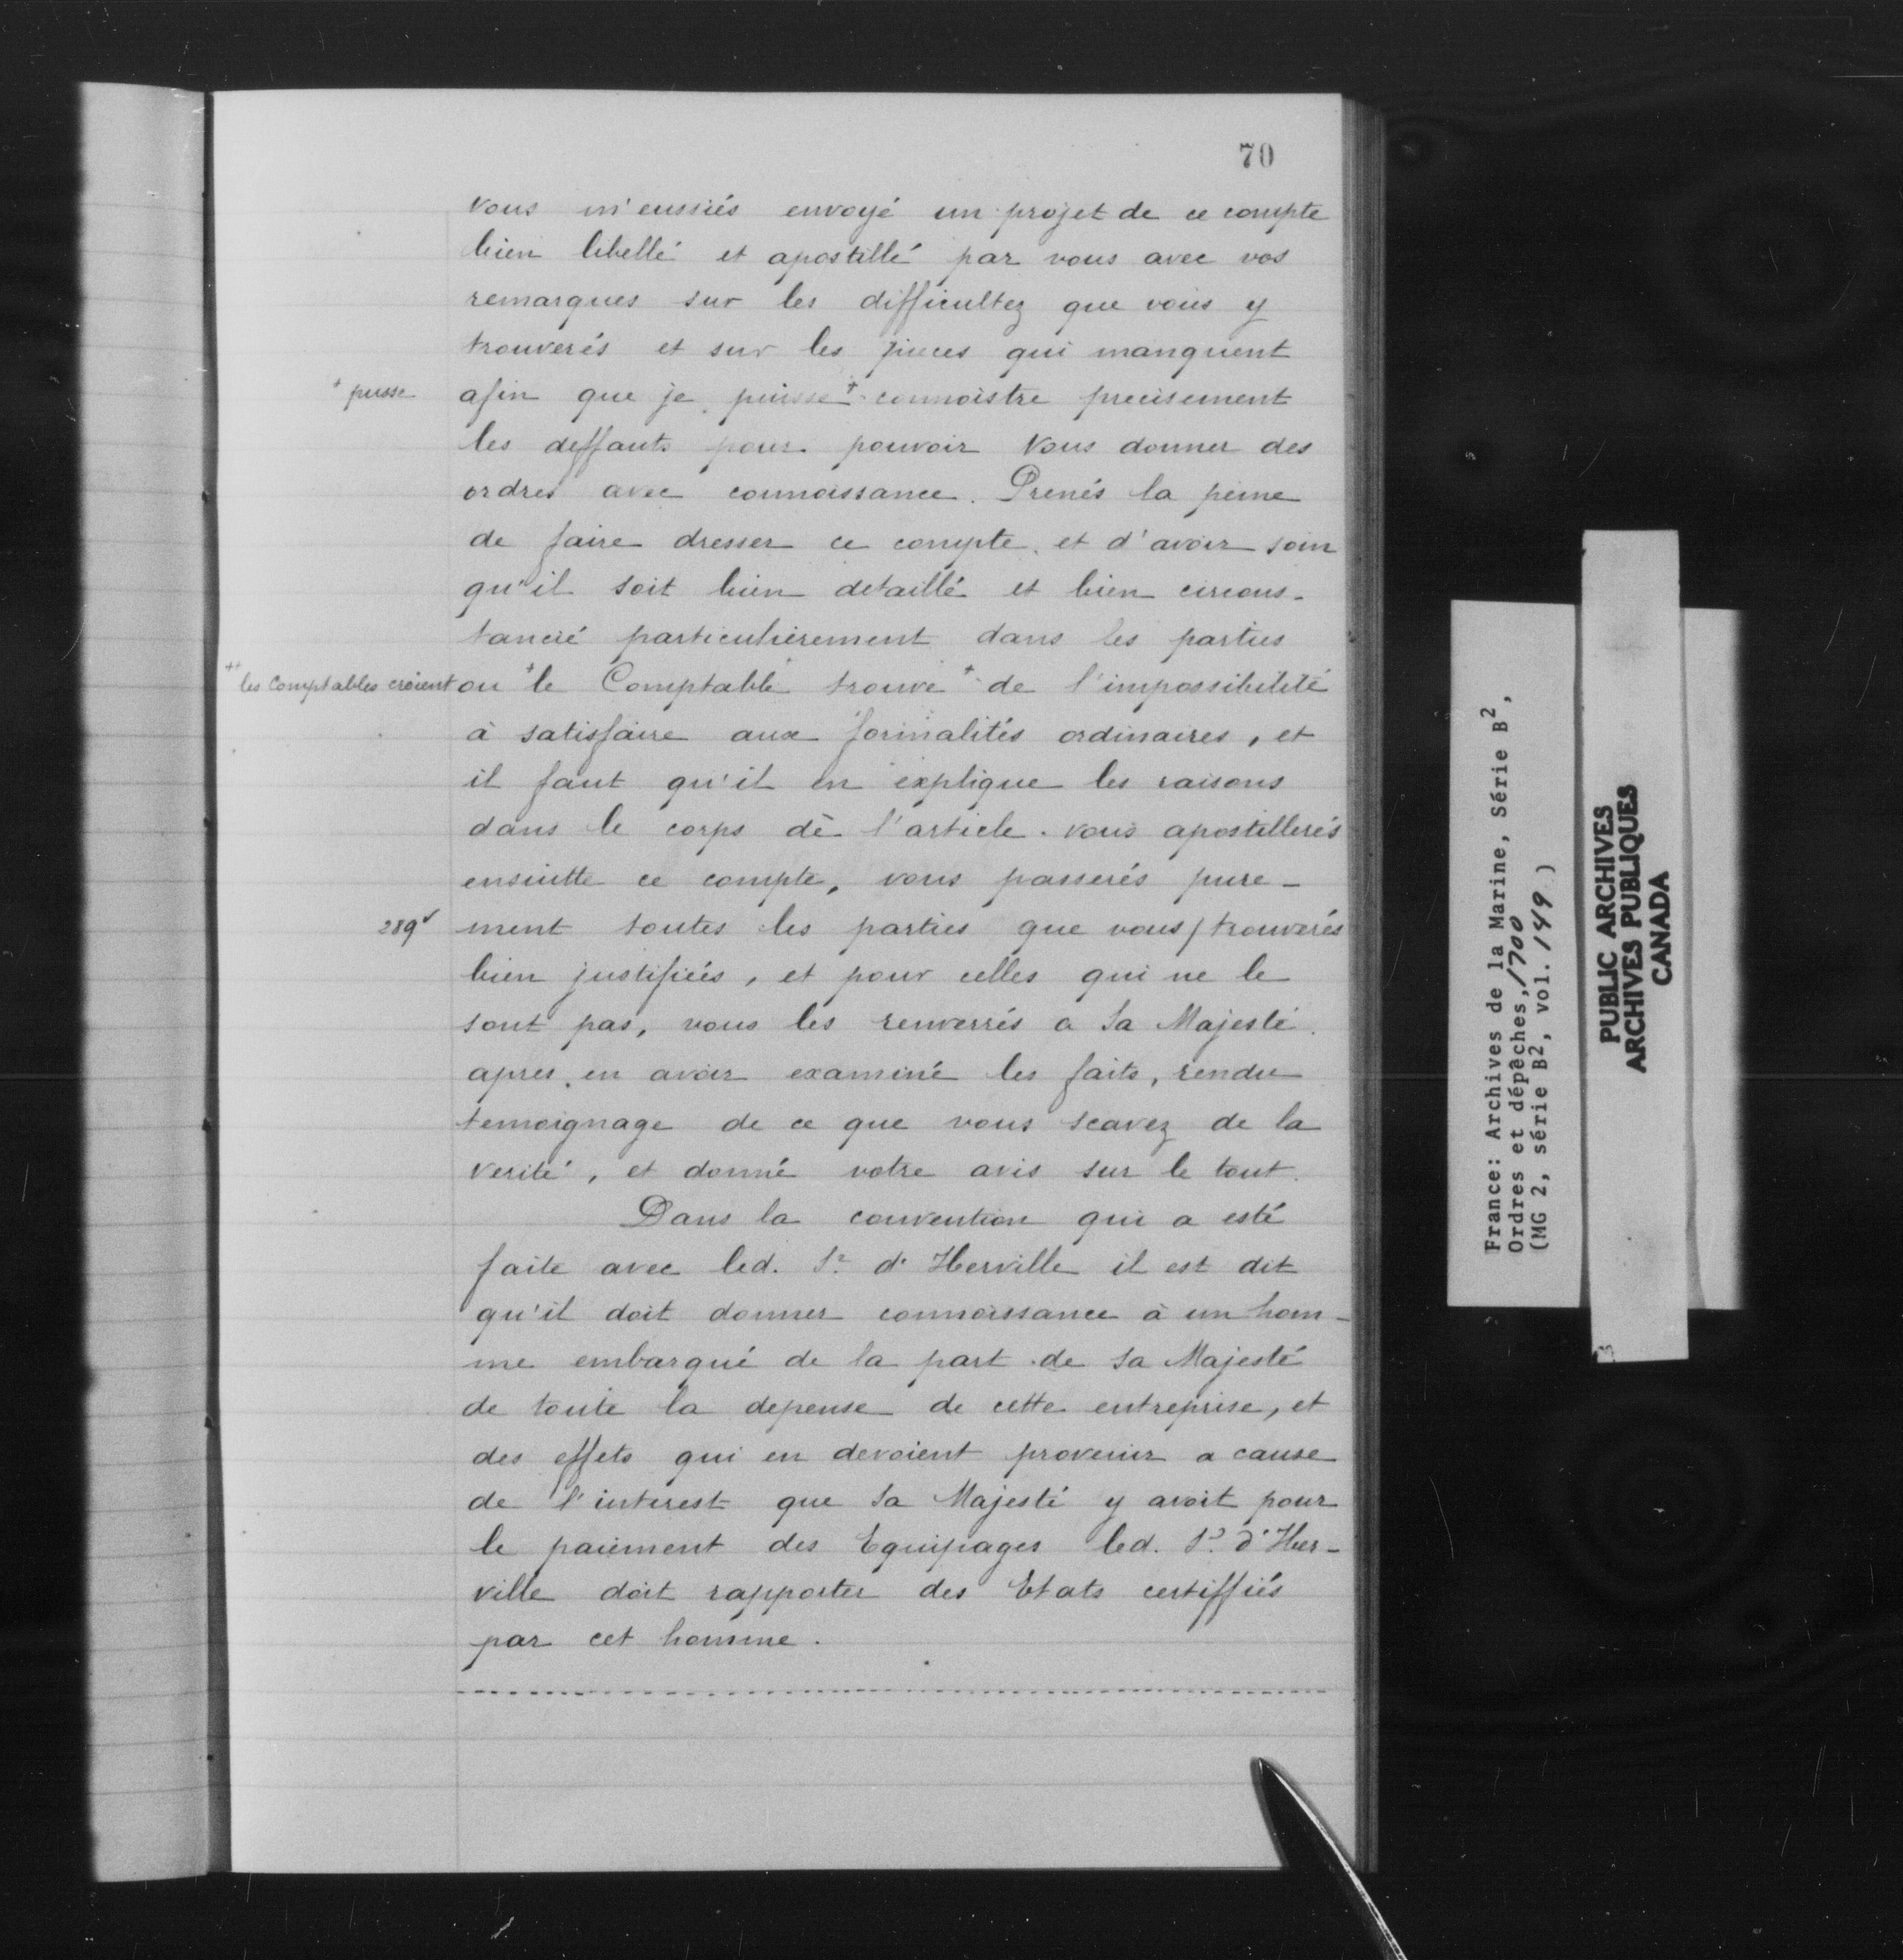 70
vous m'eussiés envoyé un projet de ce compte
bien libellé et apostillé par vous avec vos
remarques sur les difficultez que vous y
trouverés et sur les pieces qui manquent
+ pusse
afin que je puisse + connoistre precisement
les deffauts pour pouvoir vous donner des
ordres avec connoissance. Prenés la peine
de faire dresser ce compte, et d'avoir soin
qu'il soit bien detaillé et bien circons-
tancié particulièrement dans les parties
++ les Comptables croient
ou + le Comptable trouve + de l'impossibilité
à satisfaire aux formalités ordinaires, et
il faut qu'il en explique les raisons
dans le corps de l'article. vous apostillerés
ensuitte ce compte, vous passerés pure-
289v
ment toutes les parties que vous / trouverés
bien justifiées, et pour celles qui ne le
sont pas, vous les renverrés a Sa Majesté
apres en avoir examiné les faits, rendu
temoignage de ce que vous scavez de la
verité, et donné votre avis sur le tout.
Dans la convention qui a esté
faite avec led. Sr d'Herville il est dit
qu'il doit donner connoissance à un hom-
me embarqué de la part de Sa Majesté
de toute la depense de cette entreprise, et
des effets qui en devoient provenir a cause
de l'interest que Sa Majesté y avoit pour
le paiement des Equipages led. Sr d'Her-
ville doit rapporter des Etats certiffiés
par cet homme.
France: Archives de la Marine, Série B2,
Ordres et dépêches, 1700
(MG 2, série B2, vol. 149 )
PUBLIC ARCHIVES
ARCHIVES PUBLIQUES
CANADA